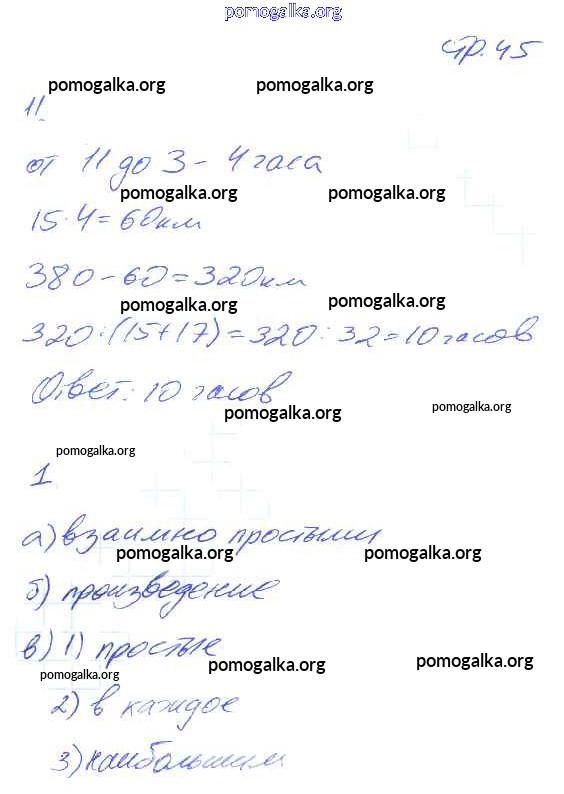 pomogalka.org
стр. 45
pomogalka.org pomogalka.org
11.
от 11 до 3 - 4 часа
pomogalka.org pomogalka.org
15·4=60км
380-60=320км
pomogalka.org pomogalka.org
320:(15+17)=320:32=10 часов
Ответ: 10 часов
pomogalka.org pomogalka.org
pomogalka.org
1
а) взаимно простыми
pomogalka.org pomogalka.org
б) произведение
в) 1) простые
pomogalka.org pomogalka.org
pomogalka.org
2) в каждое
3) наибольшим